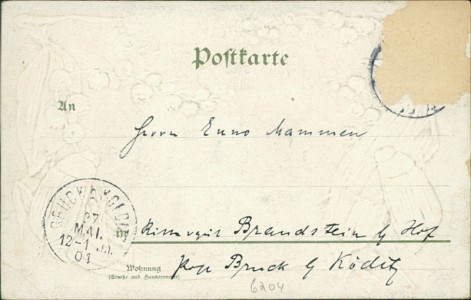 Postkarte
An
Herrn Enno Mammen
in
Brandstein b/ Hof
Bruck b/ Köditz
Wohnung
(Straße und Hausnummer)
27
MAI.
12-1
01
6204